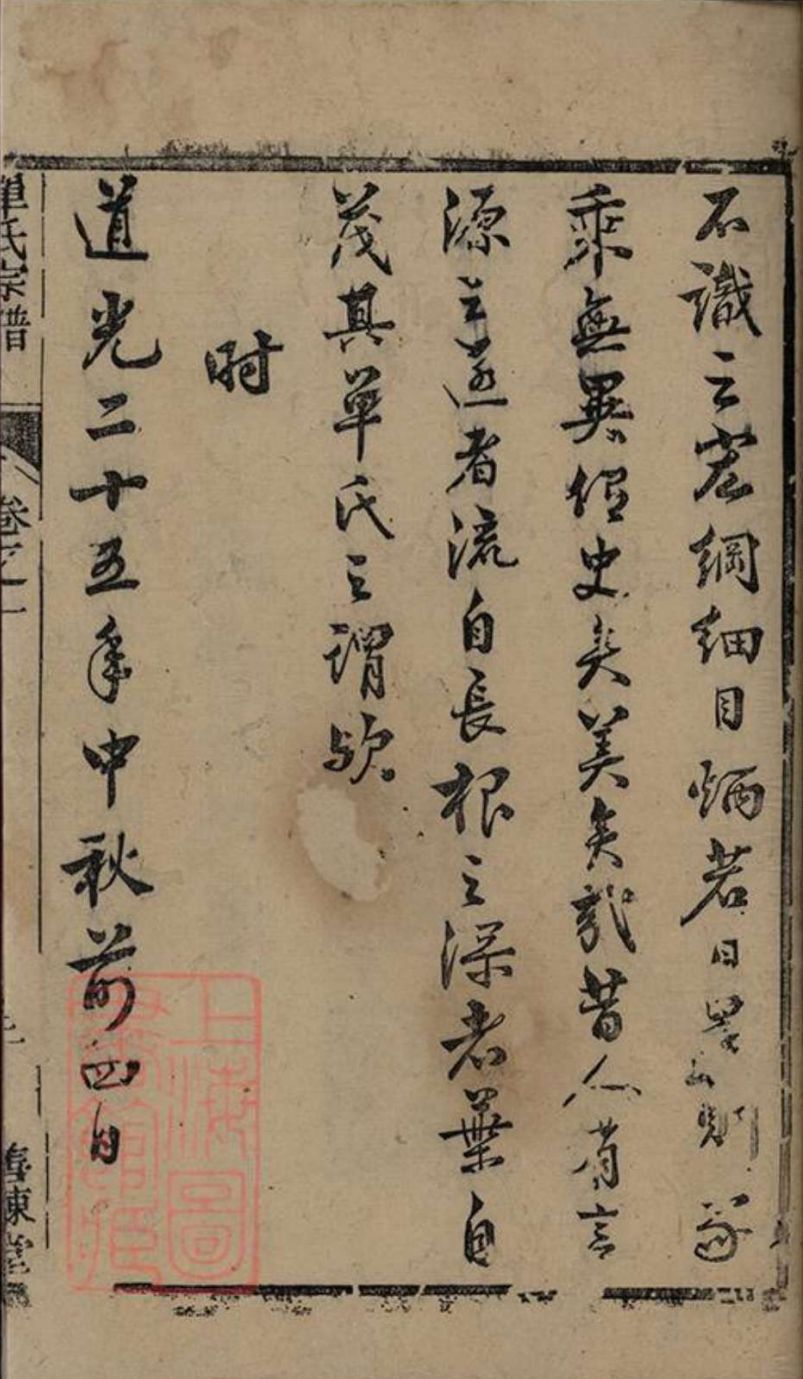 不識之宏綱細目炳若日星則家
乘無異經史矣美矣哉昔人有言
源之遠者流自長根之深者葉自
茂其單氏之謂歟
時
道光二十五年中秋前四日
單氏宗譜
卷之一
堂
上海圖書館藏